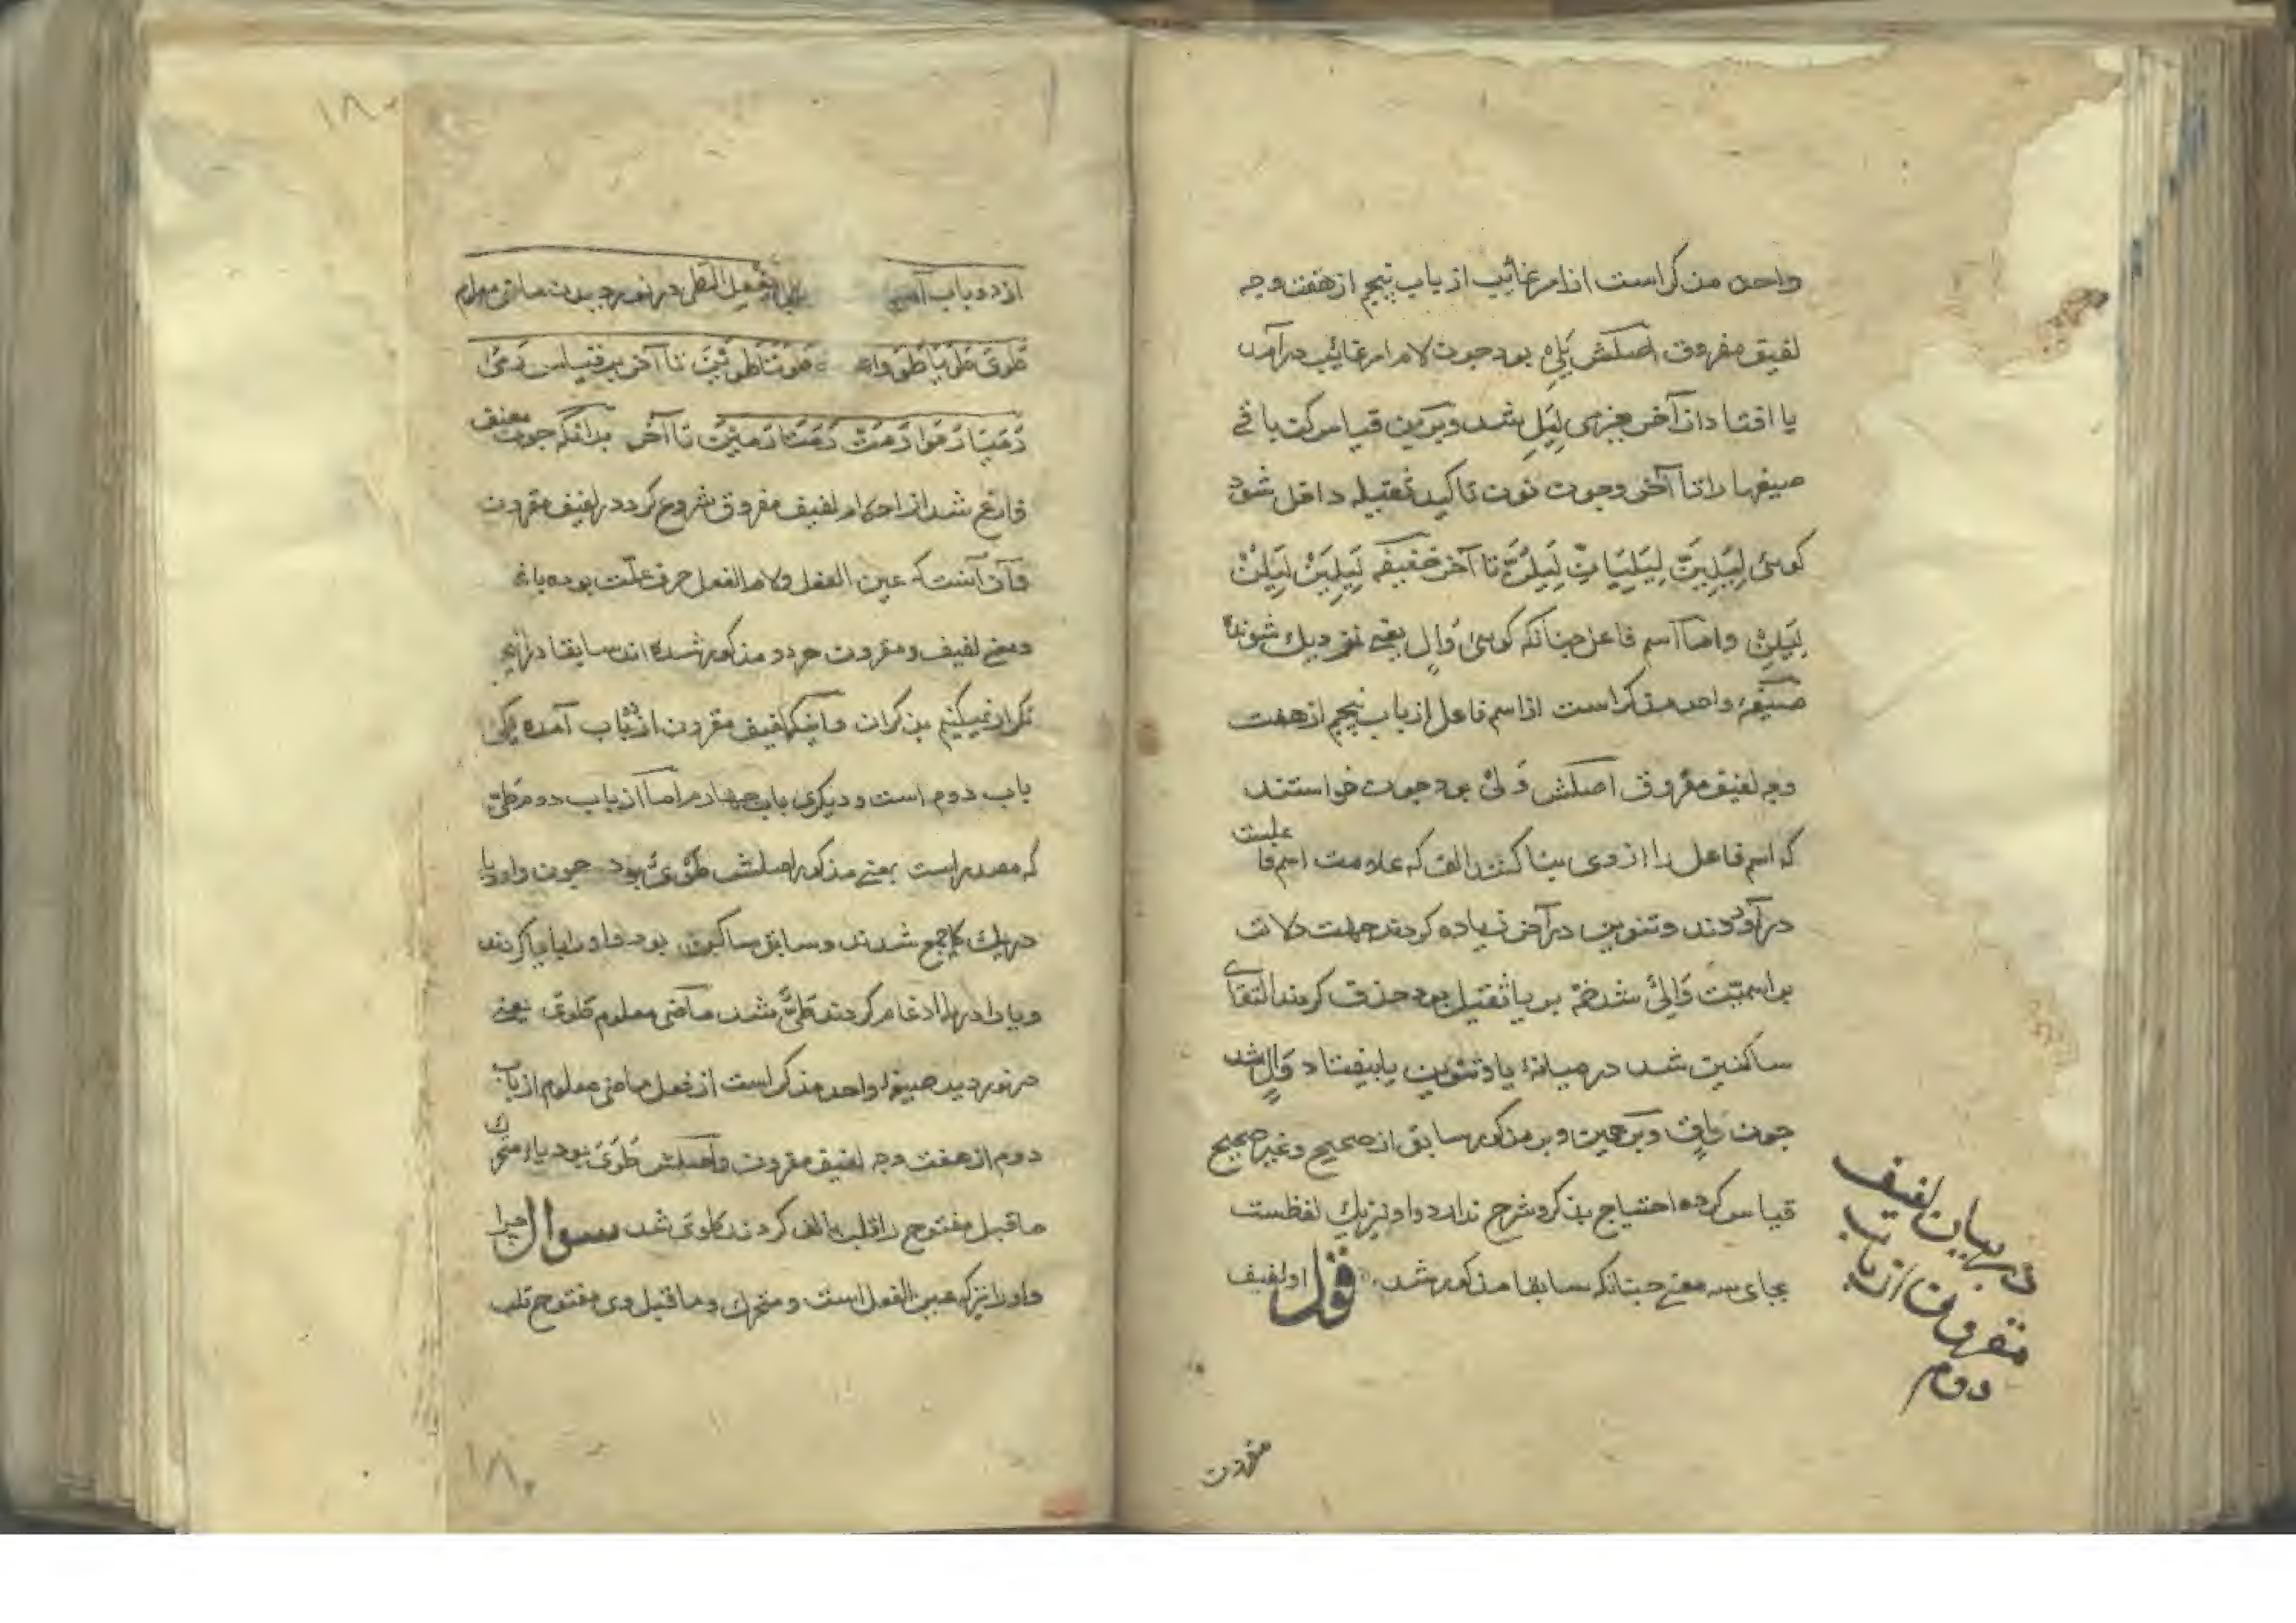 واحد مذکر است از امر غائب از باب پنجم از هفت وجه
لفیف مفروق اصلش یَلِی بود چون لام امر غائب درآمد
یا افتاد از آخر بجزمی لِیَلِ شد و برین قیاس کن باقی
صیغها را تا آخر و چون نون تاکید ثقیله داخل شود
کوئی لِیَلِیَنَّ لِیَلِیَانِّ لِیَلُنَّ تا آخر خفیفه لِیَلِیَنْ لِیَلُنْ
لِیَلِنْ واما اسم فاعل چنانکه کوئی وَالٍ یعنی نزدیک شونده
صیغهٔ واحد مذکر است از اسم فاعل از باب پنجم از هفت
وجه لفیف مفروق اصلش وَلْیٌ بود چون خواستند
که اسم فاعل را از وی بنا کنند الف که علامت اسم فاعلیست
درآوردند و تنوین در آخر زیاده کردند جهت دلالت
بر اسمیّت وَالِیٌ شد ضمّه بر یا ثقیل بود حذف کردند التقای
ساکنین شد در میانهٔ یا و تنوین یا بیفتاد وَالٍ شد
چون وَاقٍ و برهمین و بر مذکور سابق از صحیح و غیر صحیح
قیاس کرده احتیاج بذکر و شرح ندارد و او نیز یک لفظست
بجای سه معنی چنانکه سابقا مذکور شد قوله او لفیف
در بیان لفیف
مقرون از باب
دوم
مقرون
۱۸۰
از دو باب الطی در نوردیدن ماضی معلوم
طَوَی طَوَیَا طَوَوا طَوَتَا طَوَیْنَ تا آخر بر قیاس رَمَی
رَمَیَا رَمَوا رَمَتْ رَمَتَا رَمَیْنَ تا آخر بدانکه چون مصنف
فارغ شد از احکام لفیف مفروق شروع کرد در لفیف مقرون
وآن آنست که عین الفعل ولام الفعل حرف علّت بوده باشد
ومعنی لفیف و مقرون هر دو مذکور شده اند سابقا
تکرار نمیکنیم بذکر آن و آنکه لفیف مقرون از دو باب آمده یکی
باب دوم است و دیکری باب چهارم اما از باب دوم طَیّ
که مصدر است بمعنی مذکور اصلش طَوْیٌ بود چون واو ویا
در یک کلمه جمع شدند و سابق ساکن بود واو را یا کردند
ویا را در یا ادغام کردند طَیٌّ شد ماضی معلوم طَوَی یعنی
در نوردید صیغهٔ واحد مذکر است از فعل ماضی معلوم از باب
دوم از هفت وجه لفیف مقرون واصلش طَوَیَ بود یاء متحرک
ماقبل مفتوح را قلب بالف کردند طَوَی شد سوال چرا
واو را نیز که عین الفعل است و متحرک وماقبل وی مفتوح قلب
۱۸۰